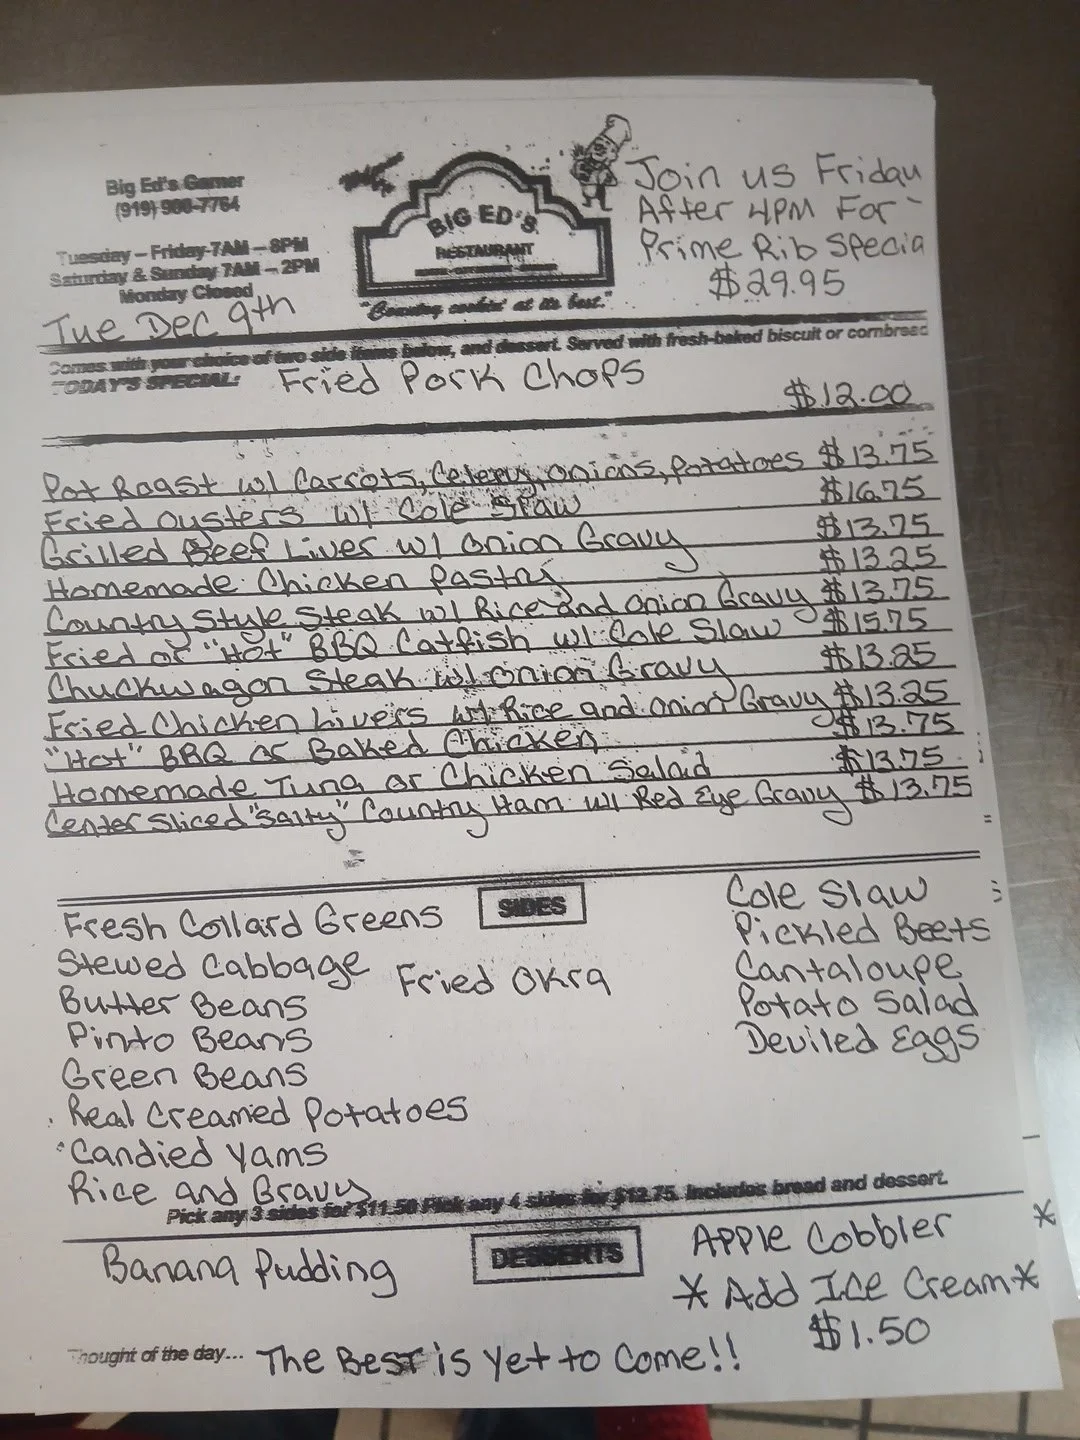 Big Ed's Garner
(919) 900-7764
Tuesday – Friday 7AM – 8PM
Saturday & Sunday 7AM – 2PM
Monday Closed
Tue Dec 9th
BIG ED'S
RESTAURANT
"Country cookin' at its best."
Join us Friday
After 4PM For
Prime Rib Specia
$29.95
Comes with your choice of two side items below, and dessert. Served with fresh-baked biscuit or cornbread
TODAY'S SPECIAL: Fried Pork Chops
$12.00
Pot Roast w/ Carrots, Celery, Onions, Potatoes $13.75
Fried Oysters w/ Cole Slaw $16.75
Grilled Beef Liver w/ Onion Gravy $13.75
Homemade Chicken Pastry $13.25
Country Style Steak w/ Rice and Onion Gravy $13.75
Fried or "Hot" BBQ Catfish w/ Cole Slaw $15.75
Chuckwagon Steak w/ Onion Gravy $13.25
Fried Chicken Livers w/ Rice and Onion Gravy $13.25
"Hot" BBQ or Baked Chicken $13.75
Homemade Tuna or Chicken Salad $13.75
Center Sliced "Salty" Country Ham w/ Red Eye Gravy $13.75
SIDES
Fresh Collard Greens
Stewed Cabbage
Butter Beans
Pinto Beans
Green Beans
Real Creamed Potatoes
Candied Yams
Rice and Gravy
Fried Okra
Cole Slaw
Pickled Beets
Cantaloupe
Potato Salad
Deviled Eggs
Pick any 3 sides for $11.50 Pick any 4 sides for $12.75. Includes bread and dessert.
DESSERTS
Banana Pudding
Apple Cobbler *
* Add Ice Cream *
$1.50
Thought of the day... The Best is Yet to Come!!